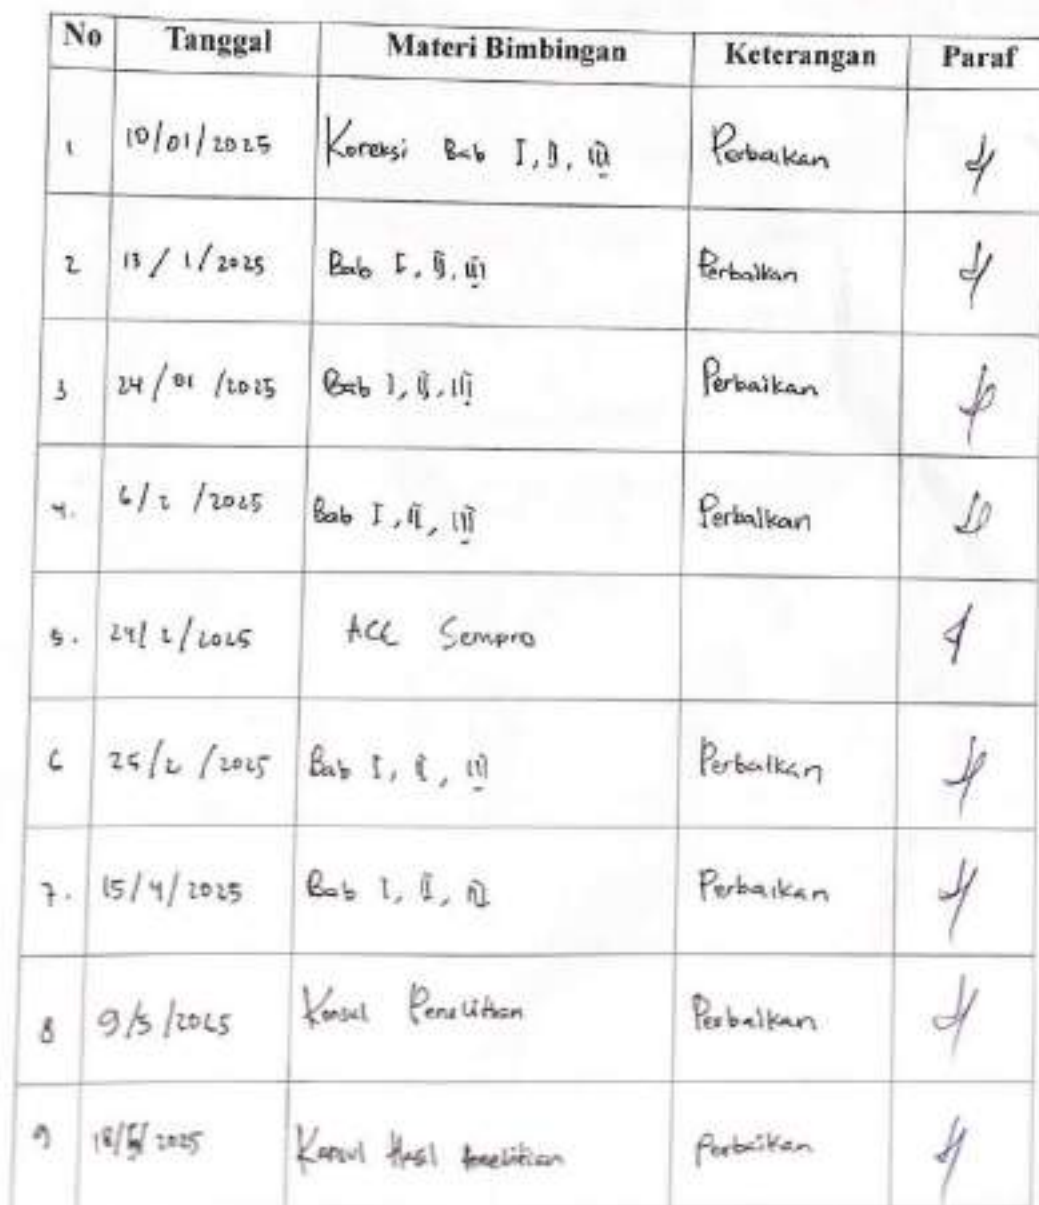 No Tanggal Materi Bimbingan Keterangan Paraf
1 10/01/2025 Koreksi Bab I, II, III Perbaikan
2 13/1/2025 Bab I, II, III Perbaikan
3 24/01/2025 Bab I, II, III Perbaikan
4. 6/2/2025 Bab I, II, III Perbaikan
5. 24/2/2025 ACC Sempro
6 25/2/2025 Bab I, II, III Perbaikan
7. 15/4/2025 Bab I, II, III Perbaikan
8 9/5/2025 Konsul Penelitian Perbaikan
9 Konsul Hasil Penelitian Perbaikan